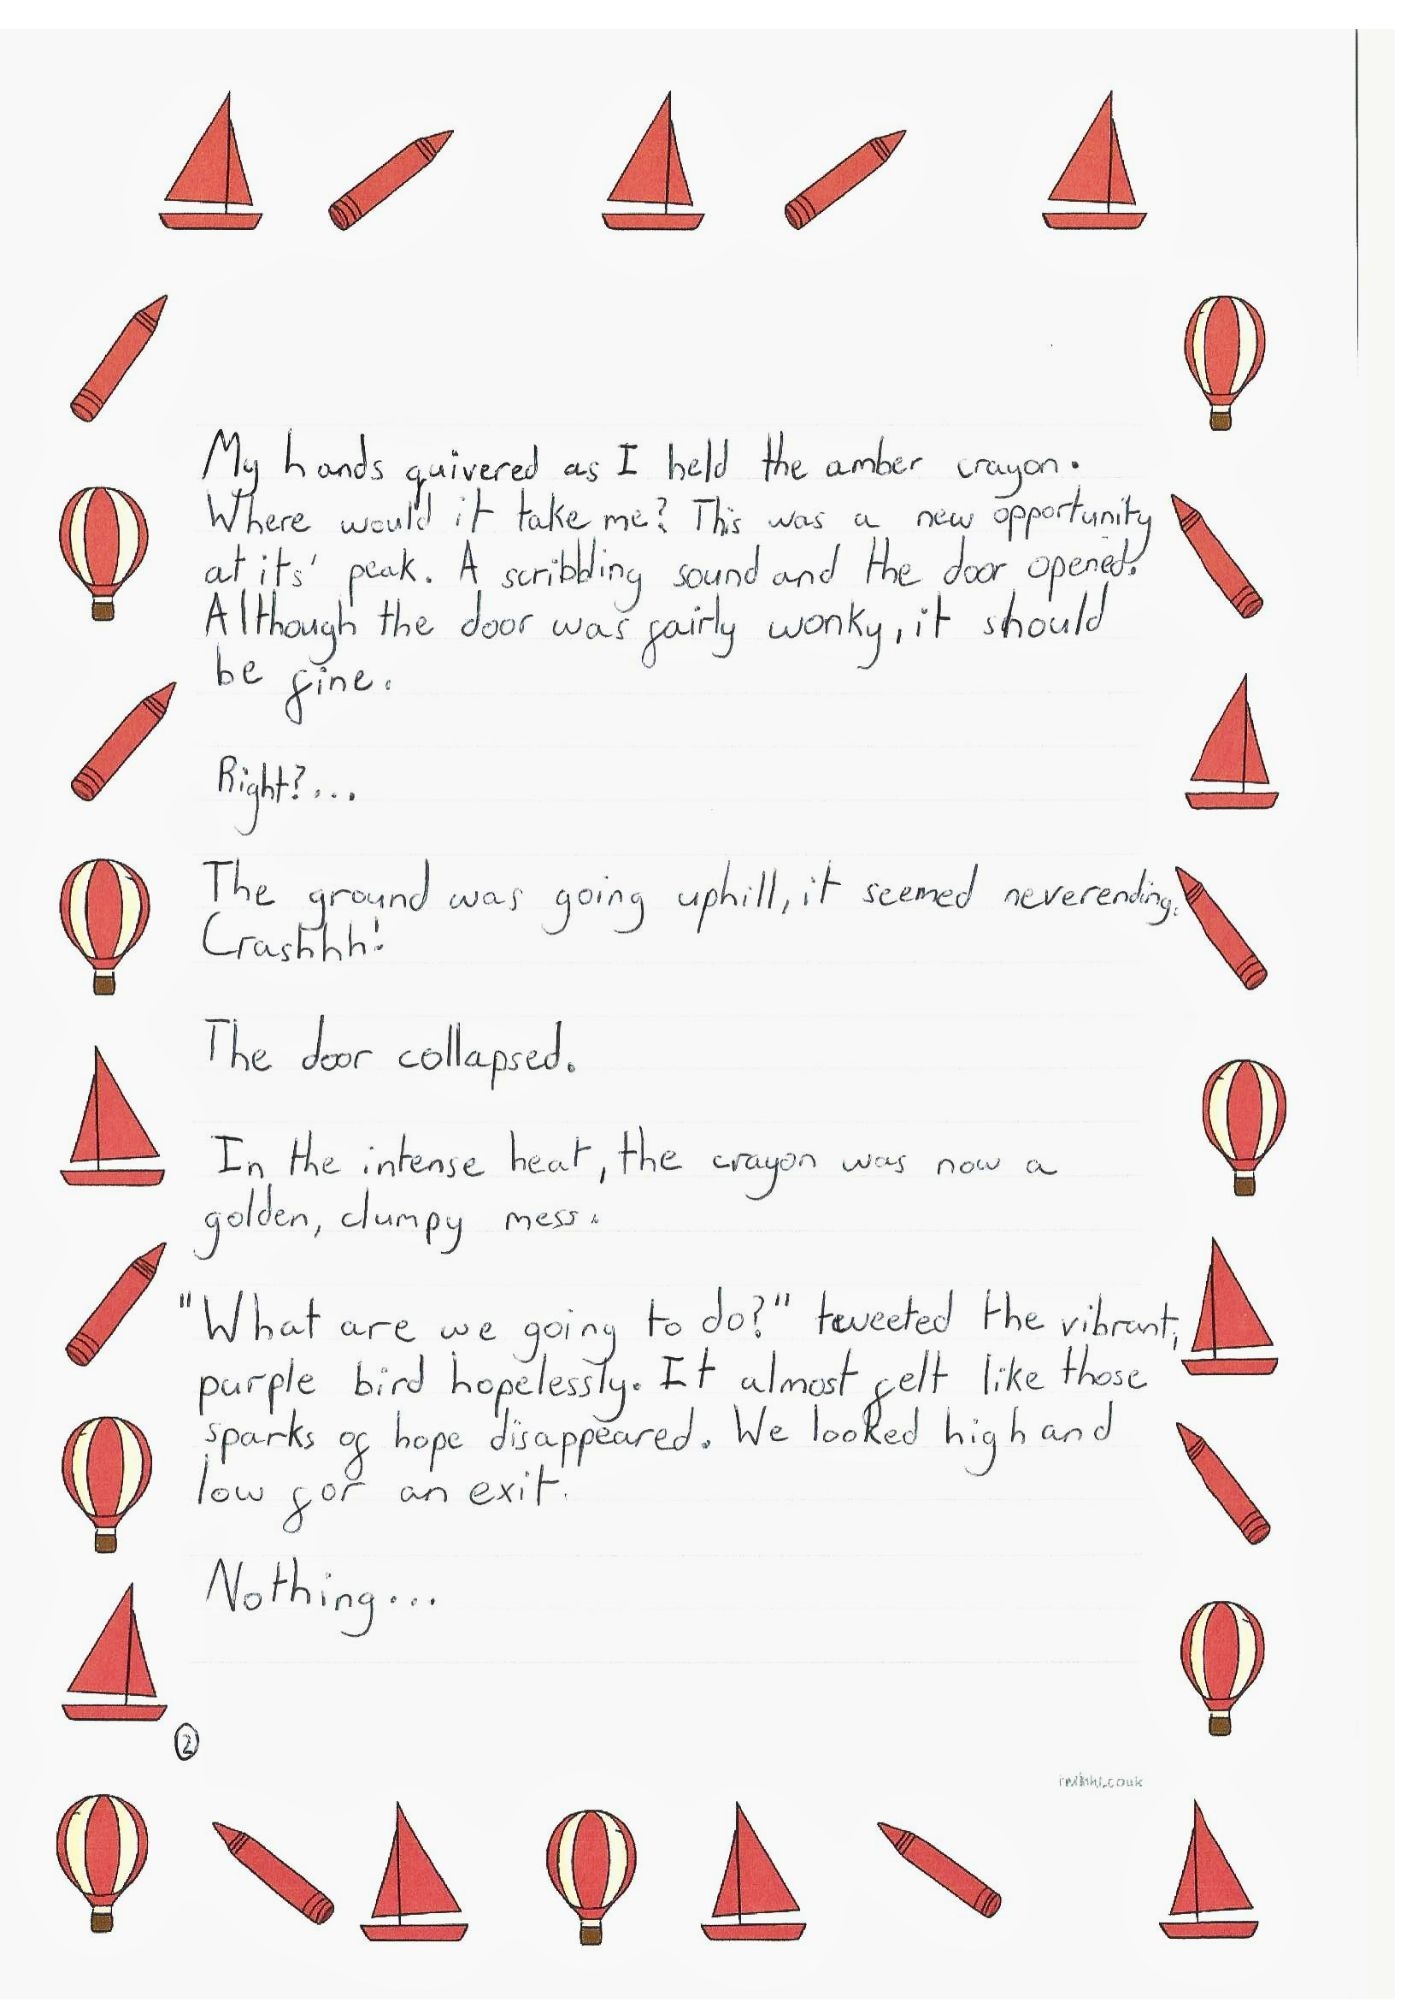 My hands quivered as I held the amber crayon.
Where would it take me? This was a new opportunity
at its' peak. A scribbling sound and the door opened.
Although the door was fairly wonky, it should
be fine.
Right?...
The ground was going uphill, it seemed neverending.
Crashhh!
The door collapsed.
In the intense heat, the crayon was now a
golden, clumpy mess.
"What are we going to do?" tweeted the vibrant,
purple bird hopelessly. It almost felt like those
sparks of hope disappeared. We looked high and
low for an exit.
Nothing...
2